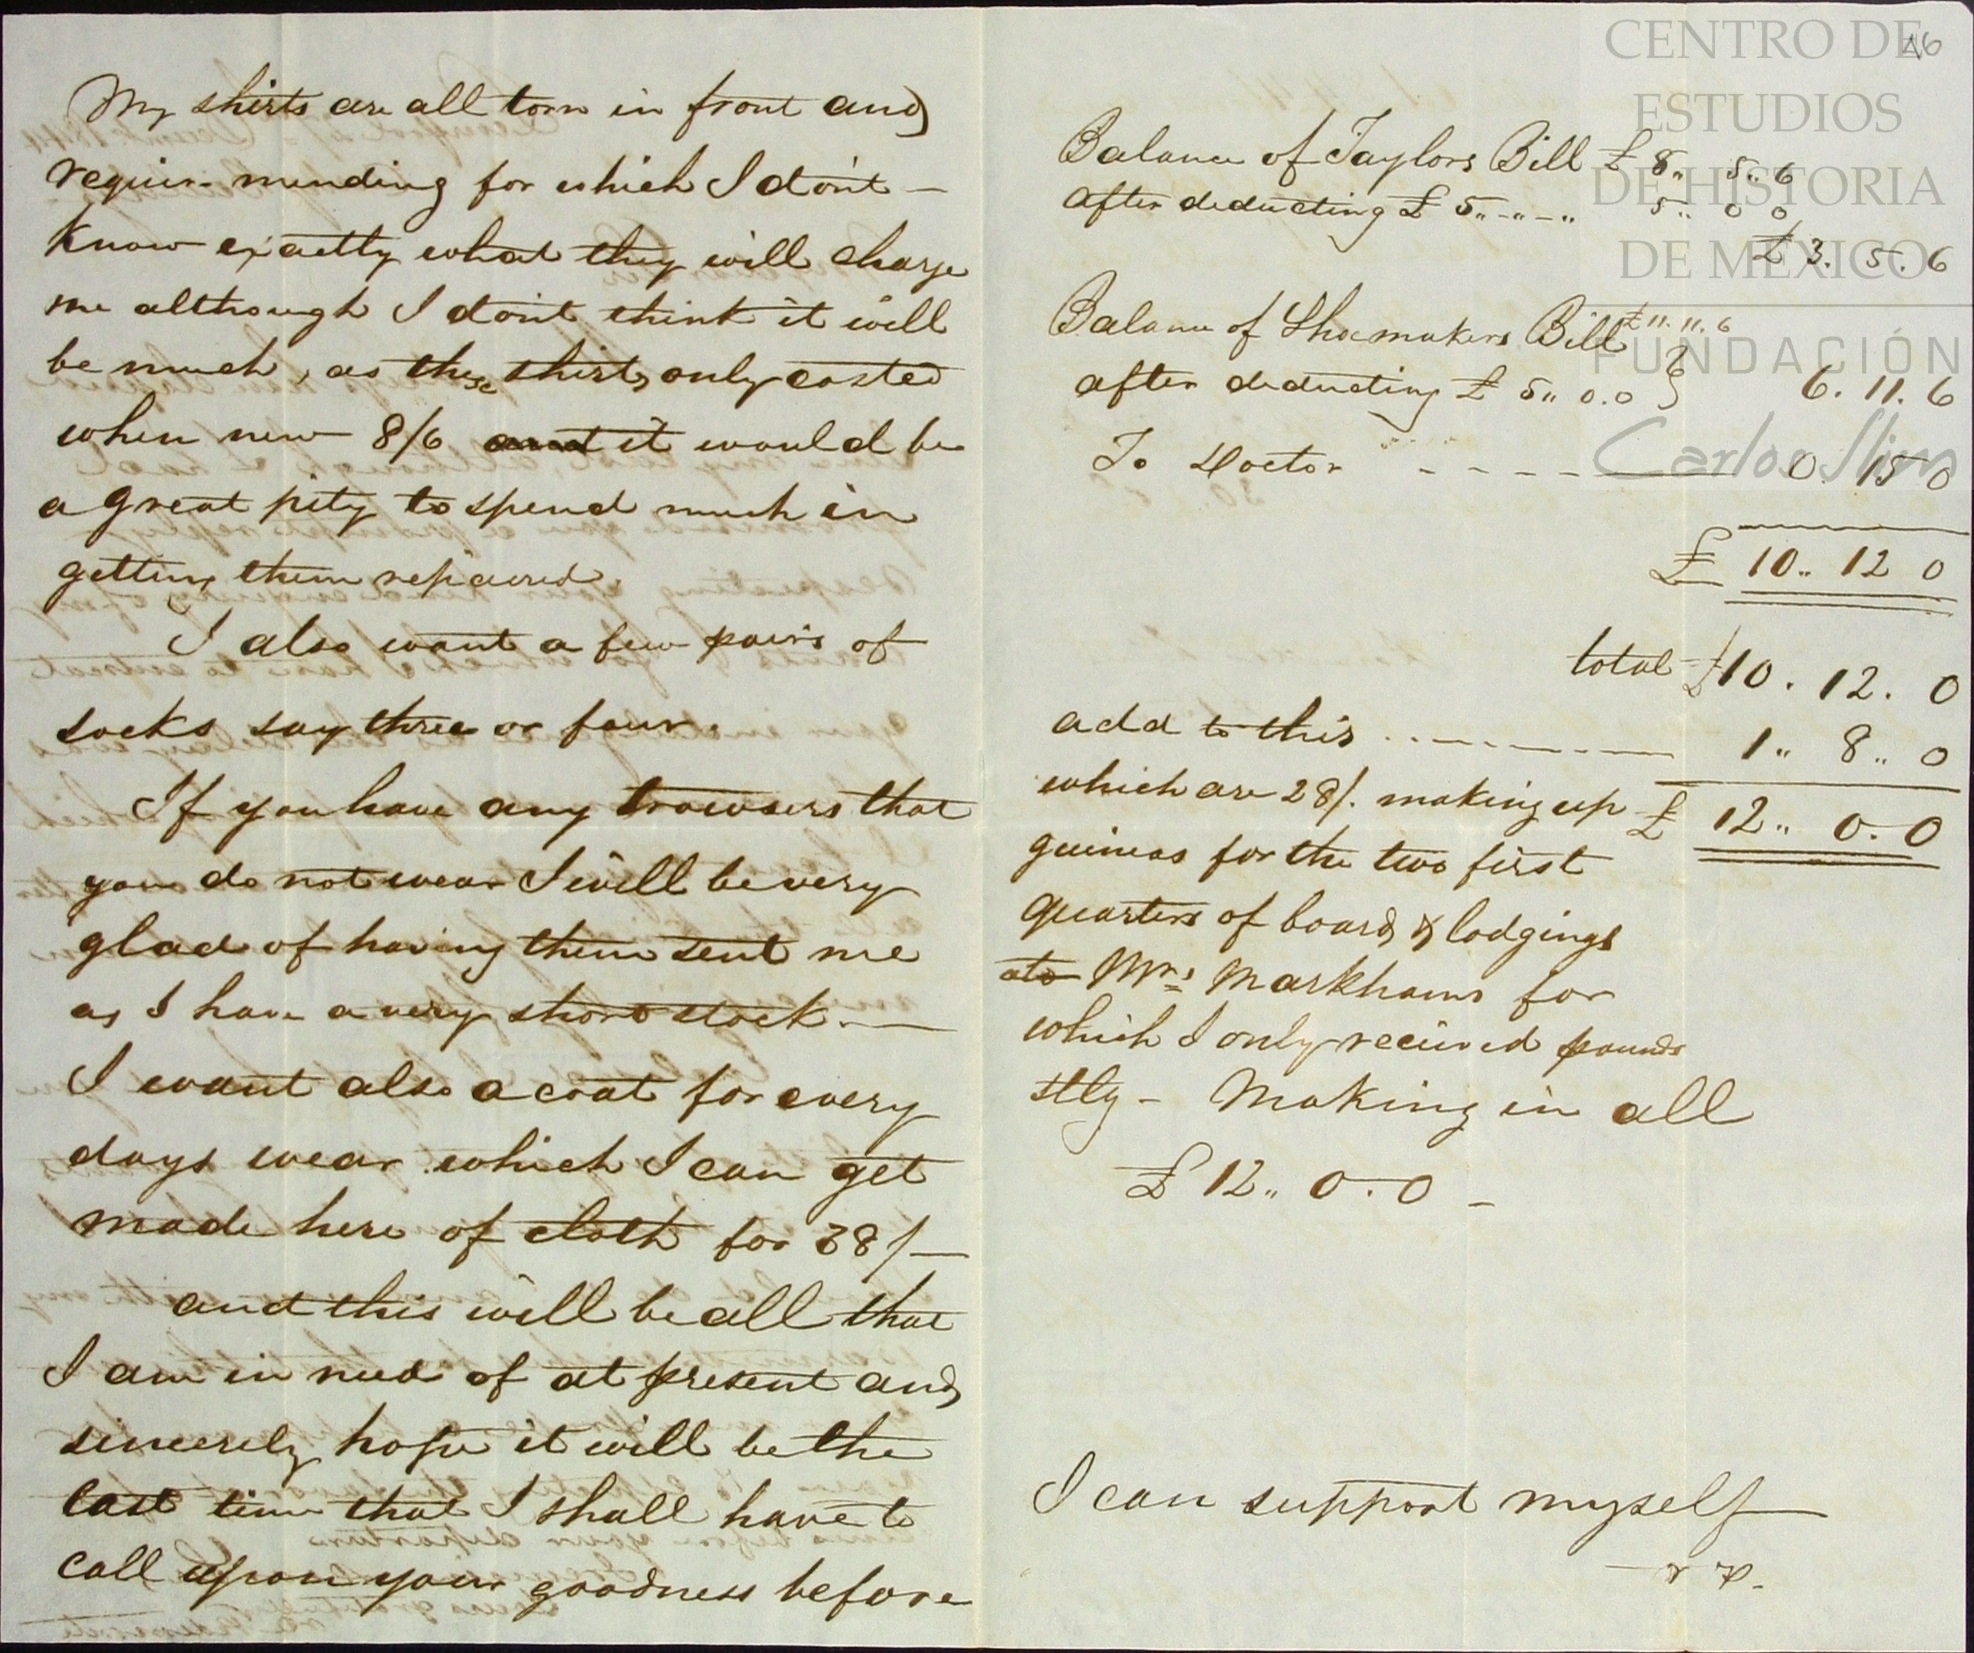 My shirts are all torn in front and
requir mending for which I don't –
know exactly what they will charge
me although I don't think it will
be much, as these shirts only costed
when new 8/6 and it would be
a great pity to spend much in
getting them repaired.
I also want a few pairs of
socks say three or four.
If you have any trowsers that
you do not wear I will be very
glad of having them sent me
as I have a very short stock. —
I want also a coat for every
days wear which I can get
made here of cloth for 38/—
and this will be all that
I am in need of at present and
sincerely hope it will be the
last time that I shall have to
call upon your goodness before
46
Balance of Taylors Bill £ 8.. 5.. 6
after deducting £ 5.. - .. - .. 5.. 0 0
£ 3. 5. 6
Balance of Shoemakers Bill £ 11. 11. 6
after deducting £ 5.. 0.0 } 6. 11. 6
To Doctor - - - - — 0. 15 0
£ 10.. 12 0
total £10. 12. 0
add to this ........ — 1.. 8.. 0
which are 28/. making up £ 12.. 0. 0
guineas for the two first
quarters of board & lodgings
ato Mrs Markhams for
which I only received pounds
stlg – Making in all
£ 12.. 0. 0 –
I can support myself
CENTRO DE
ESTUDIOS
DE HISTORIA
DE MÉXICO
FUNDACIÓN
Carlos Slim